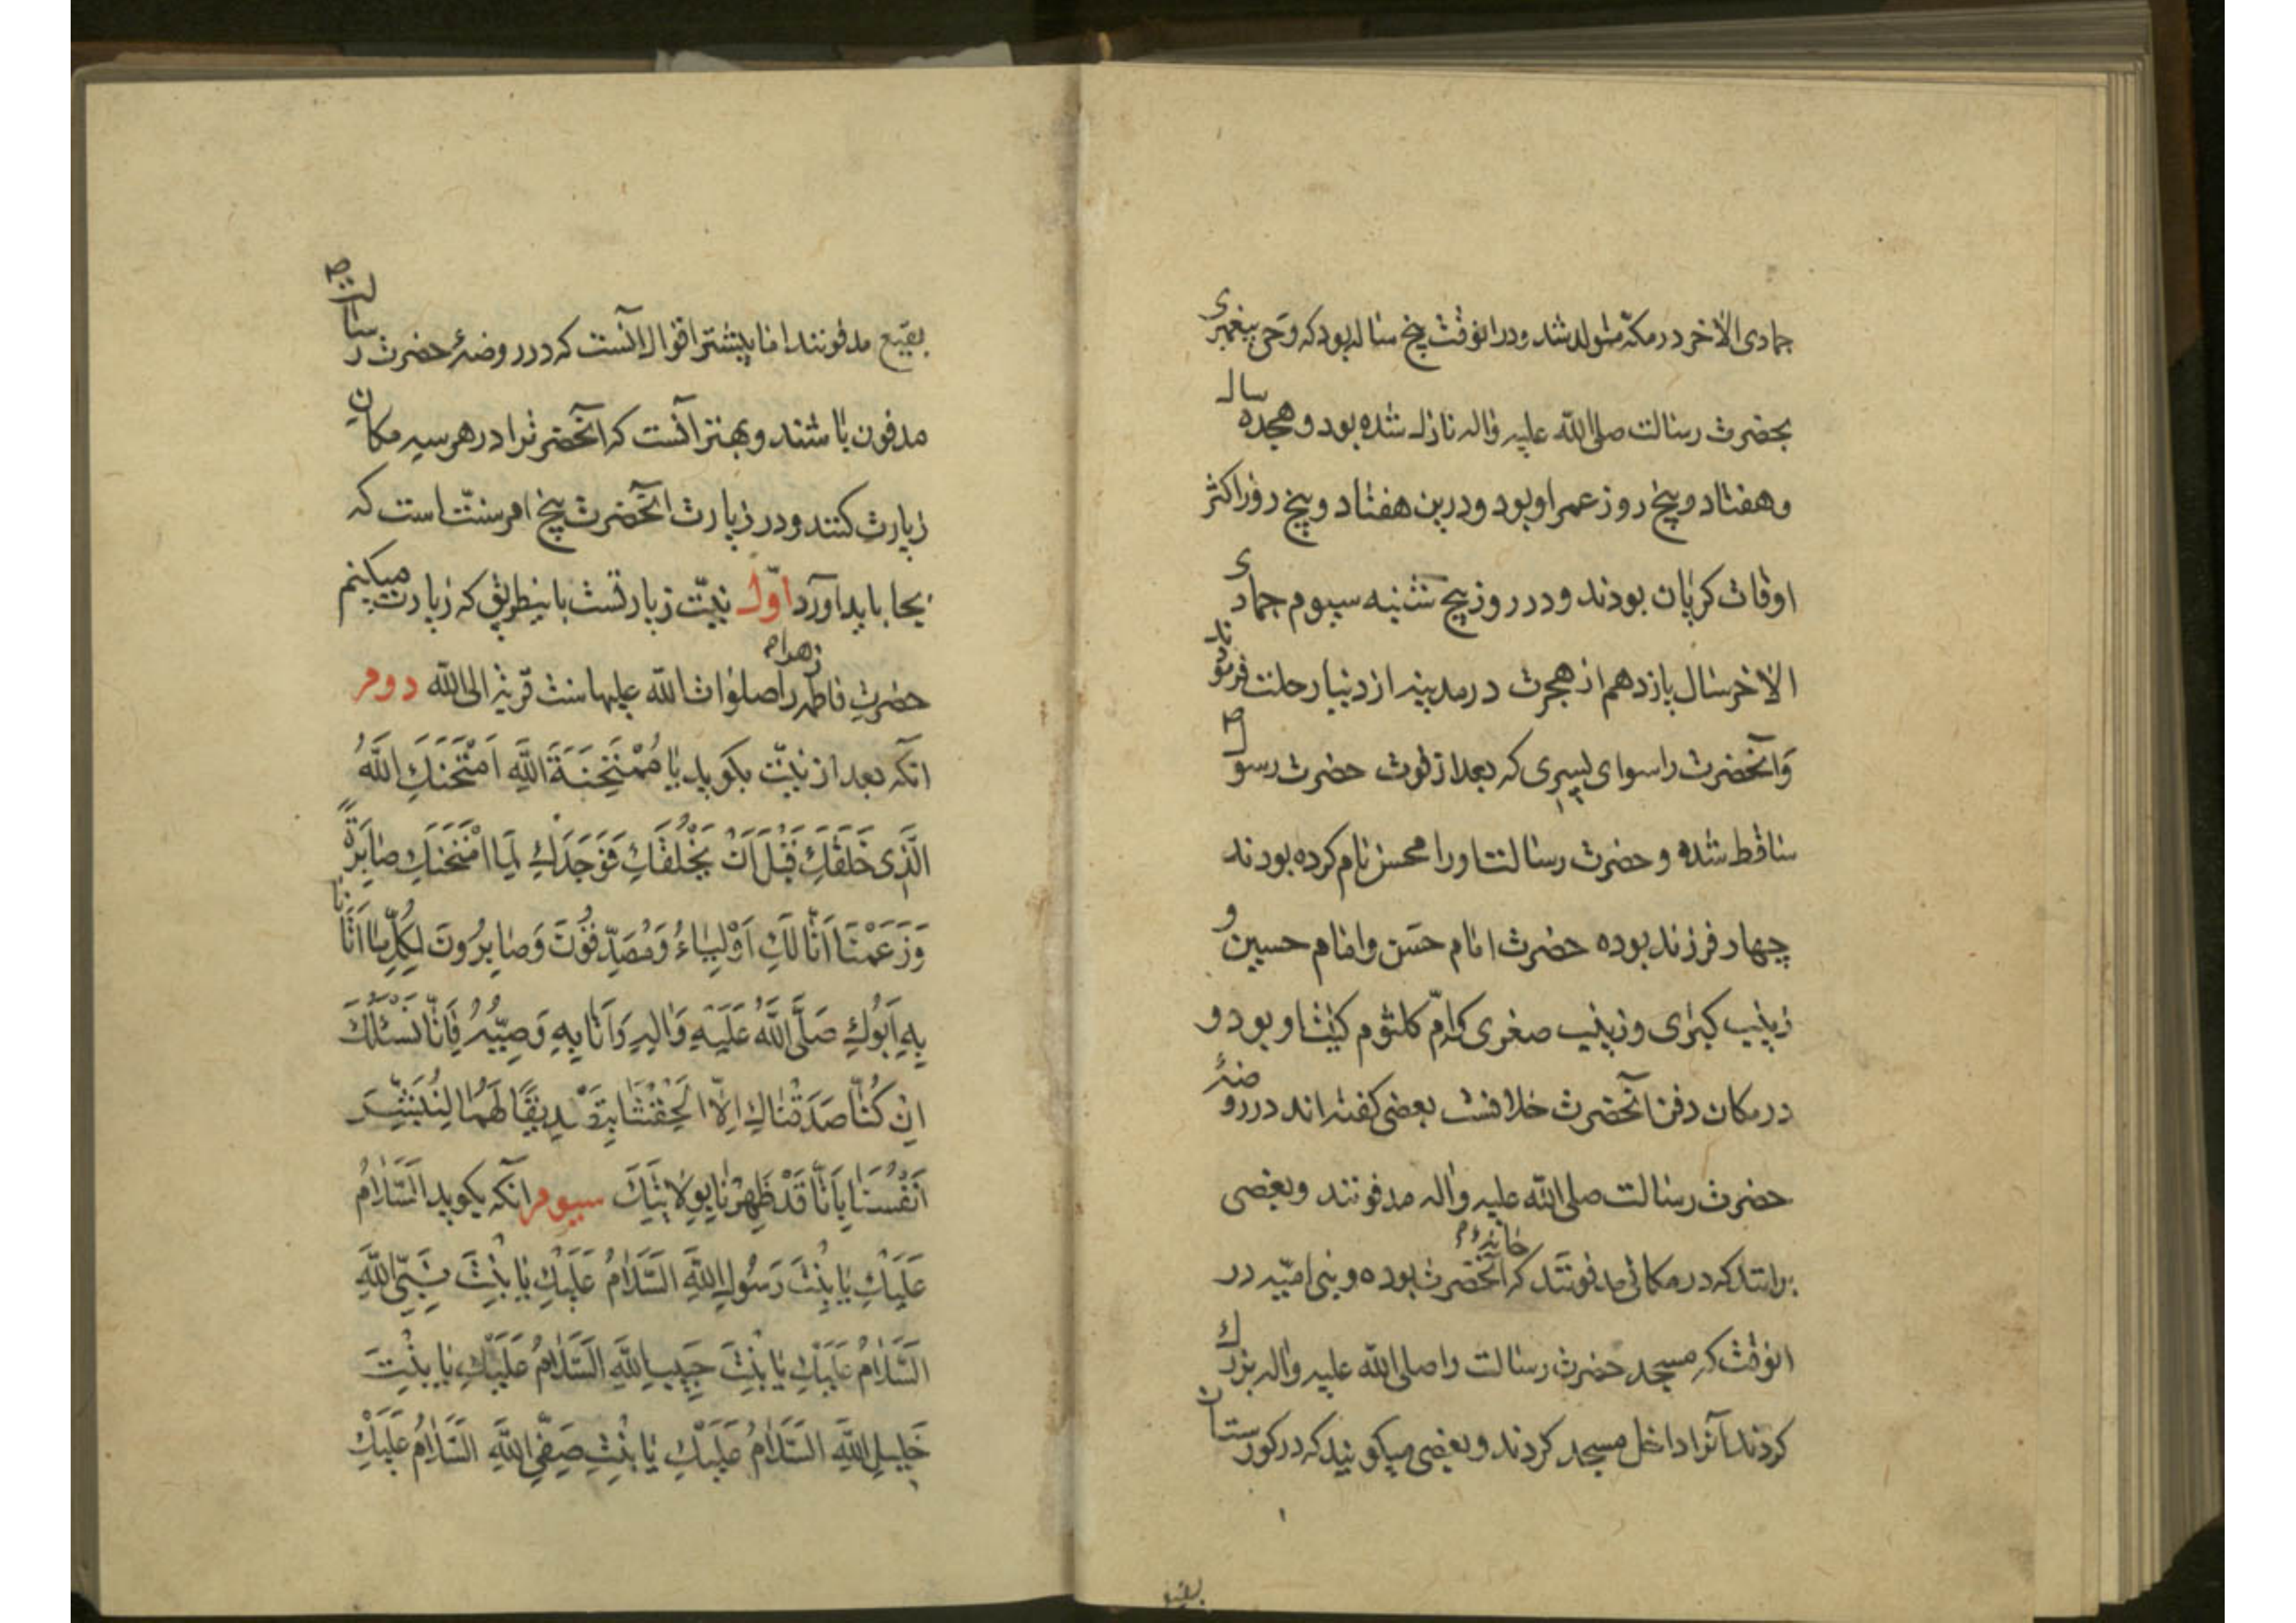 جمادی الاخر در مکّه متولد شد و در انوقت پنج سال بود که وحی پیغمبری
بحضرت رسالت صلی الله علیه واله نازل شده بود و هجده سال
و هفتاد و پنج روز عمر او بود و درین هفتاد و پنج روز اکثر
اوقات کریان بودند و در روز پنج شنبه سیوم جمادی
الاخر سال یازدهم از هجرت در مدینه از دنیا رحلت فرمودند
وآنحضرت را سوای پسری که بعد از فوت حضرت رسول ص
ساقط شده و حضرت رسالت او را محسن نام کرده بودند
چهار فرزند بوده حضرت امام حسَن و امام حسین و
زینب کبرٰی و زینب صغری که امّ کلثوم کنیت او بود و
در مکان دفن آنحضرت خلافست بعضی کفته اند در روضهٔ
حضرت رسالت صلی الله علیه واله مدفونند و بعضی
برانند که در مکانی مدفونند که خانهٔ آنحضرت بوده و بنی امیّه در
انوقت که مسجد حضرت رسالت را صلی الله علیه واله بزرک
کردند آنرا داخل مسجد کردند و بعضی میکویند که در کورستان
بقیع
بقیع مدفونند اما بیشتر اقوال انست که در روضهٔ حضرت رسالت ص
مدفون باشند و بهتر انست که آنحضرت را در هر سه مکان
زیارت کنند و در زیارت آنحضرت پنج امر سنّت است که
بجا باید آورد اوّل نیّت زیارتست باینطریق که زیارت میکنم
حضرتِ فاطمه زهرا را صلوات الله علیها سنت قربة الی الله دوم
انکه بعد از نیّت بکوید یٰا مُمْتَحَنَةَ اللّٰهِ اَمْتَحَنَكِ اللّٰهُ
الَّذِی خَلَقَكِ قَبْلَ اَنْ یَخْلُقَكِ فَوَجَدَكِ لِمَا امْتَحَنَكِ صٰابِرَةً
وَزَعَمْنٰا اَنّٰا لَكِ اَوْلِیٰاءُ وَمُصَدِّقُوْنَ وَصٰابِرُونَ لِكُلِّ مٰا اَتٰانٰا
بِهِ اَبُوكِ صَلَّی اللّٰهُ عَلَیْهِ وَاٰلِهِ وَاَتٰا بِهِ وَصِیُّهُ فَاِنّٰا نَسْئَلُكَ
اِنْ كُنّٰا صَدَقْنٰاكِ اِلّٰا اَلْحَقْتِنٰا بِتَصْدِیقِنٰا لَهُمٰا لِنُبَشِّرَ
اَنْفُسَنٰا بِاَنّٰا قَدْ طَهُرْنٰا بِوِلٰایَتِكِ سیوم انکه بکوید اَلسَّلٰامُ
عَلَیْكِ یٰا بِنْتَ رَسُولِ اللّٰهِ السَّلٰامُ عَلَیْكِ یٰا بِنْتَ نَبِیِّ اللّٰهِ
السَّلٰامُ عَلَیْكِ یٰا بِنْتَ حَبِیبِ اللّٰهِ السَّلٰامُ عَلَیْكِ یٰا بِنْتَ
خَلِیلِ اللّٰهِ السَّلٰامُ عَلَیْكِ یٰا بِنْتَ صَفِیِّ اللّٰهِ السَّلٰامُ عَلَیْكِ